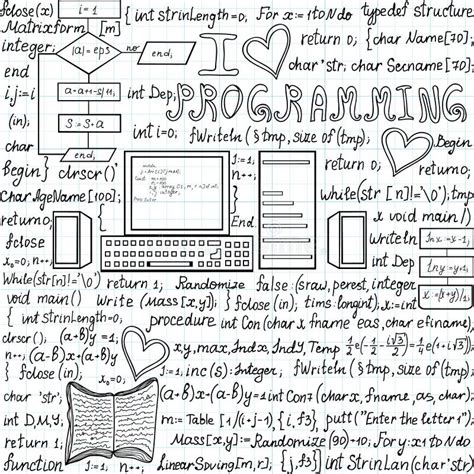 fclose(x)
i = 1
{int strinLength=0;
For x:=1toNdo
typedef structure
Matrixform [m]
I
return 0;
{char Name[70];
integer;
|a|=eps
no
end;
int Dep;
char *str;
char Secname[70];
end
i,j:=i
a:=a+1-S/11;
PROGRAMMING
(in);
S:=S+a
int i=0;
fWriteln(§tmp, size of(tmp);
char
end;
Begin}
clrscr()
i:=1;
n++;
return 0;
return0;
begin
Char AgeName[100];
int i=0;
while(str[n]!='\0');tmp)
return0;
x void main()
fclose
Writeln
int Dep
x₀=0; n++;
While(str[n]!='\0')
return 1;
Randomize
false
(sraw, perest, integer
void main()
Write (Mass[x,y];
} fclose (in);
tims longint);
x:=int
{ int strinLength=0;
procedure
int Con(char x fname eas, char efiname),
clrscr();
(a+b)y =1;
n++;
(a-b)y
x,y, max, IndX, IndY, Temp
} fclose (in);
x₀=0;
J:=1;
inc(s):Integer;
fWriteln(§tmp, size of(tmp);
char *str;
(a+b)x+(a-b)y=1;
int Con(char x, fname, as, char);
int D,M,Y;
m:= Table [1/(i+j-1),{i,f3},
putt("Enter the letter 1");
return 1
Mass[x,y]:=Randomize(90)+10;
For x:=1toNdo
function
end;
LinearSolving[m,r]
char *str;
{int StrinLan(char *st);